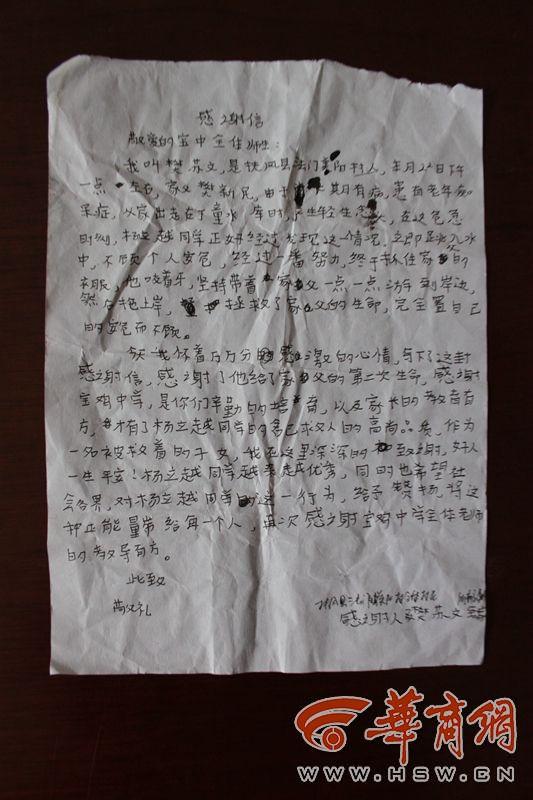 感谢信
敬爱的宝中全体师生:
我叫樊苏文,是扶风县法门美阳村人,本月22日下午
一点左右,家父樊新兄,由于长期有病,患有老年痴
呆症,从家出走在了童水库时,产生轻生念头,在这危急
时刻,杨立越同学正好经过发现这一情况,立即跳入水
中,不顾个人安危,经过一番努力,终于抓住家父的
衣服,他咬着牙,坚持带着家父一点一点游到岸边,
然后拖上岸,拯救了家父的生命,完全置自己
的安危而不顾。
今天我怀着万万分的感激的心情,写下了这封
感谢信,感谢了他给了家父的第二次生命,感谢
宝鸡中学,是你们辛勤的培育,以及家长的教育有
方,才有了杨立越同学的舍己救人的高尚品质,作为
一名被救着的子女,我在这里深深的致谢,好人
一生平安!杨立越同学越来越优秀,同时也希望社
会各界,对杨立越同学的这一行为,给予赞扬,将这
种正能量带给每一个人,再次感谢宝鸡中学全体老师
的教导有方。
此致
敬礼
感谢人樊苏文
华商網
WWW.HSW.CN